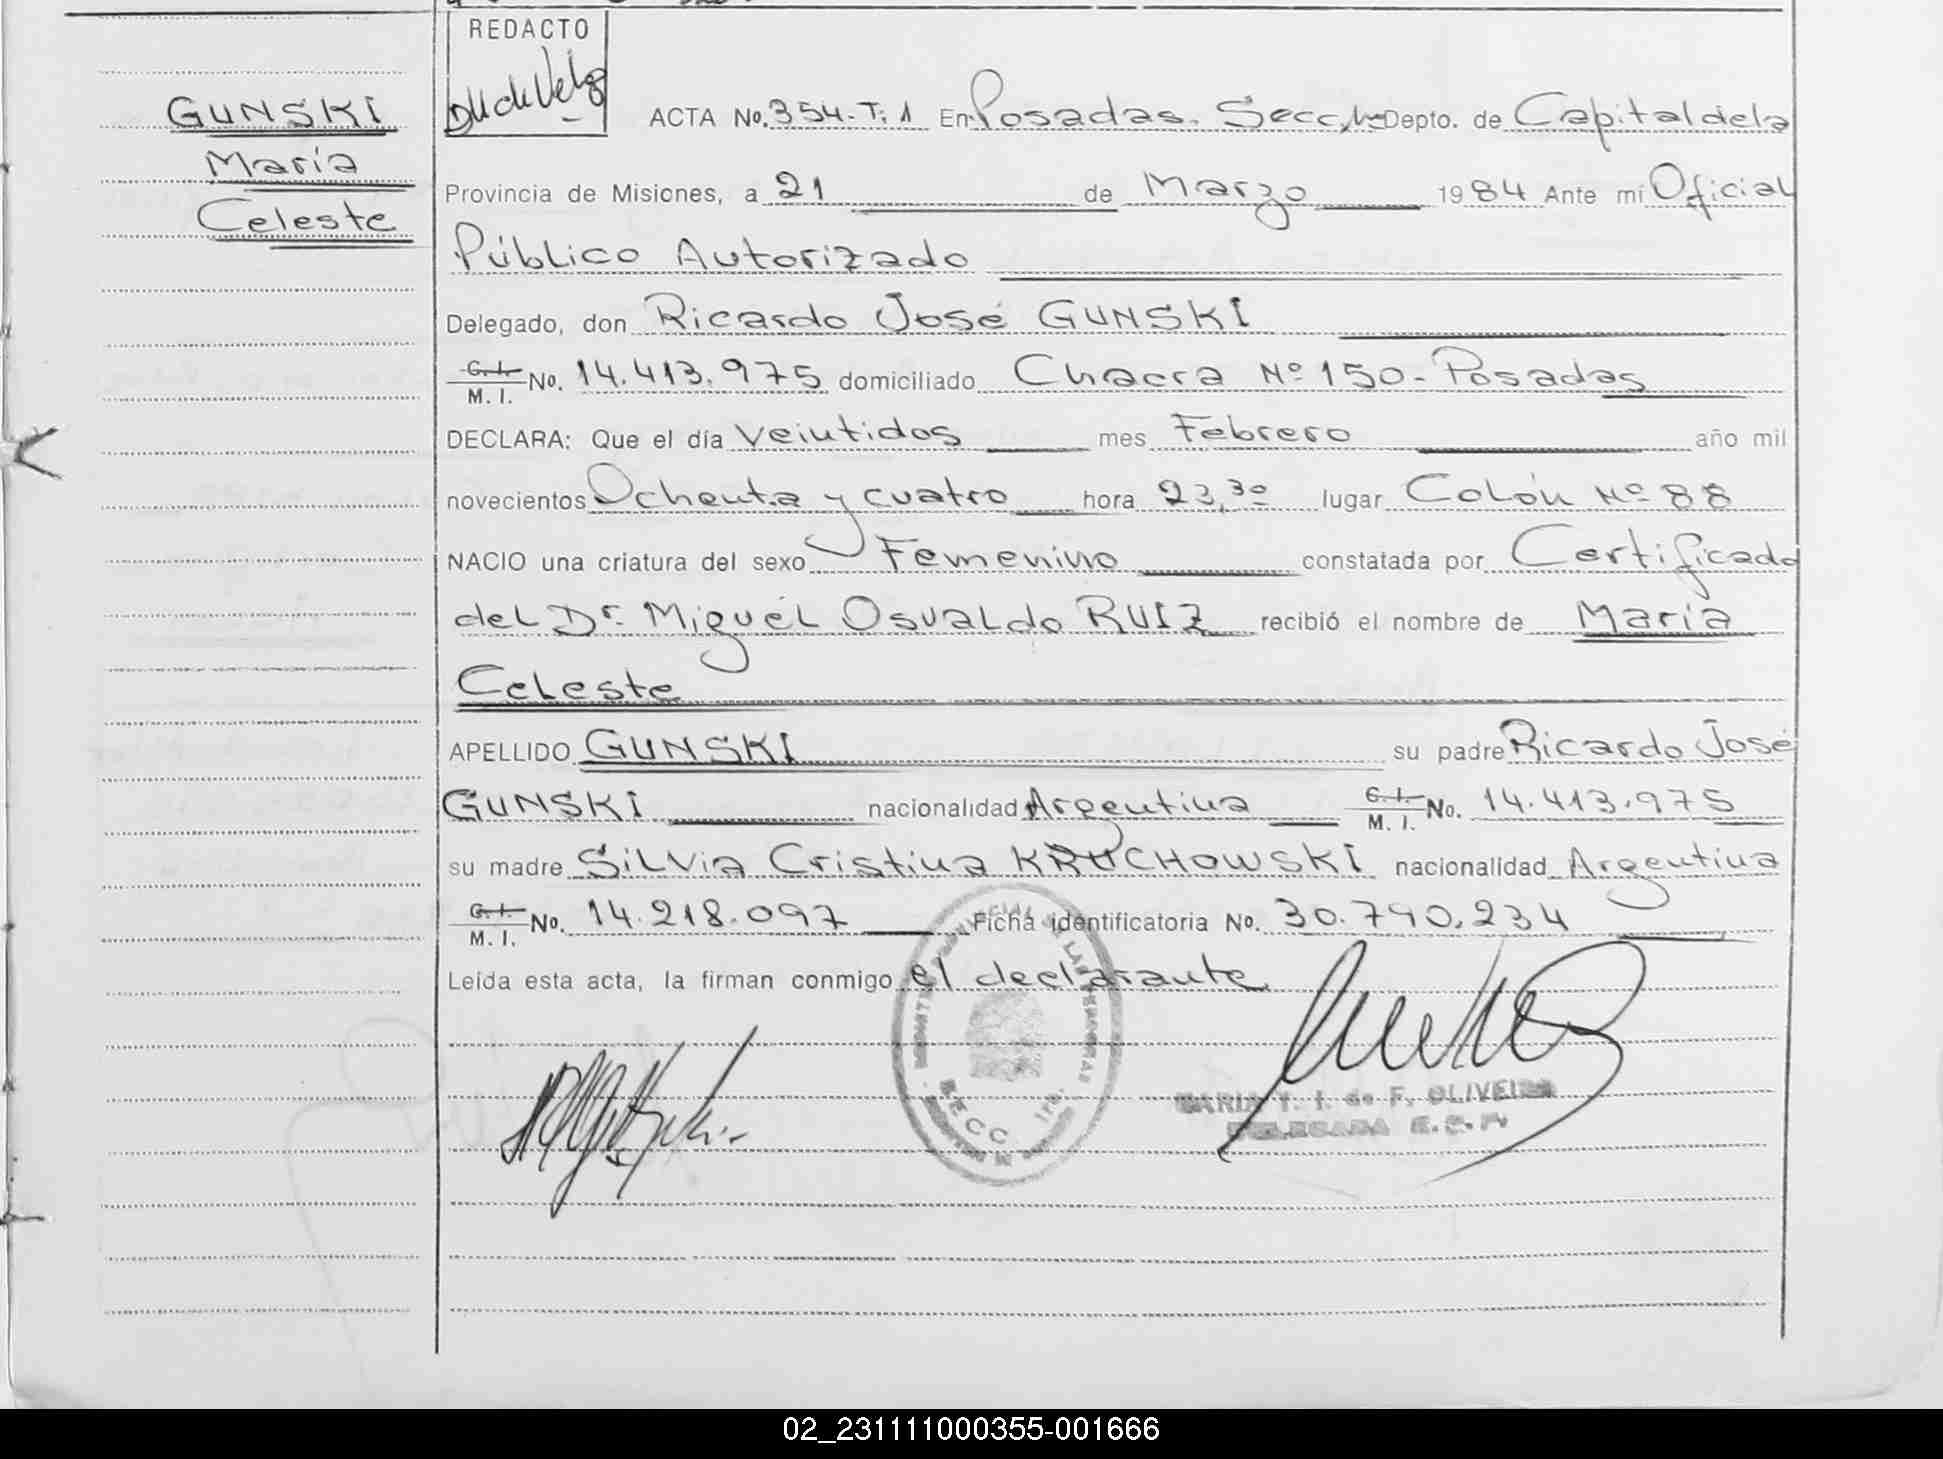 GUNSKI
María
Celeste
REDACTO
ACTA No. 354-T: 1 En Posadas. Secc. Depto. de Capital de la
Provincia de Misiones, a 21 de Marzo 1984 Ante mí Oficial
Público Autorizado
Delegado, don Ricardo José GUNSKI
C.I. M.I. No. 14.413.975 domiciliado Chacra Nº 150- Posadas
DECLARA: Que el día Veintidos mes Febrero año mil
novecientos Ochenta y cuatro hora 23,30 lugar Colón Nº 88
NACIO una criatura del sexo Femenino constatada por Certificado
del Dr. Miguel Osvaldo RUIZ recibió el nombre de María
Celeste
APELLIDO GUNSKI su padre Ricardo José
GUNSKI nacionalidad Argentina C.I. M.I. No. 14.413.975
su madre Silvia Cristina KRUCHOWSKI nacionalidad Argentina
C.I. M.I. No. 14.218.097 Ficha identificatoria No. 30.790.234
Leída esta acta, la firman conmigo el declarante
SECC. 1ra.
MARIA T. I. de F. OLIVEIRA
DELEGADA
02_231111000355-001666